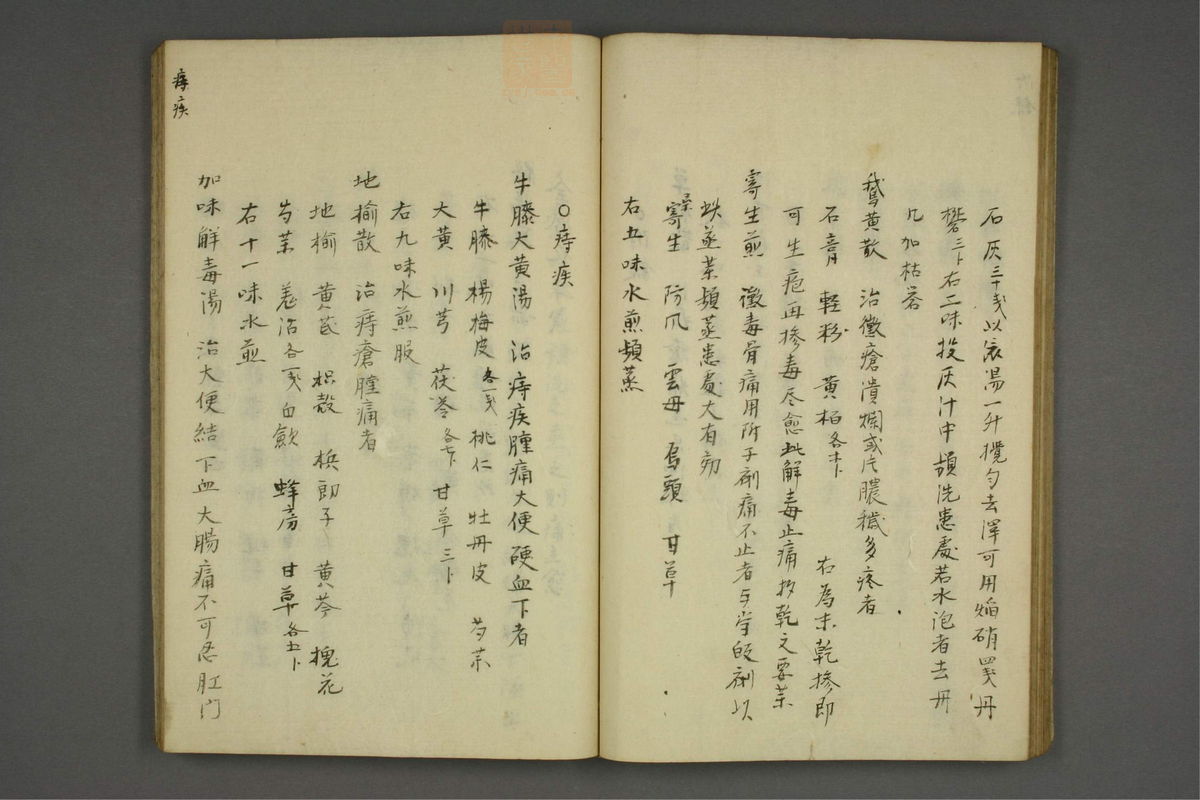 石灰三十戋以滾湯一升攪匀去滓可用焔硝四戋丹
礬三卜右二味投灰汁中頻洗患處若水泡者去丹
凡加枯礬
鵝黄散　治黴瘡潰爛或片膿穢多疼者
石膏　軽粉　黄栢各才卜　右為末乾摻即
可生疤再摻毒尽愈此解毒止痛收乾之要薬
寄生煎　黴毒骨痛用附子剤痛不止者与皆皈剤以
蒸薬頻蒸患處大有効
桑寄生　防爪　雲母　烏頭　甘草
右五味水煎頻蒸
痔疾
○痔疾
牛膝大黄湯　治痔疾腫痛大便硬血下者
牛膝　楊梅皮各一戋　桃仁　牡丹皮　芍薬
大黄　川芎　茯苓各七卜　甘草三卜
右九味水煎服
地榆散　治痔瘡腫痛者
地榆　黄芪　枳殻　梹郎子　黄芩　槐花
芍薬　羌活各一戋　白歛　蜂房　甘草各五卜
右十一味水煎
加味解毒湯　治大便結下血大腸痛不可忍肛门